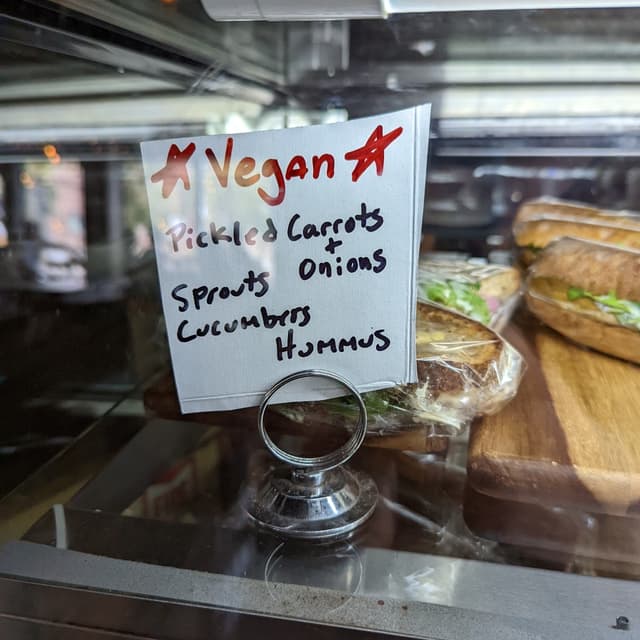 Vegan
Pickled Carrots
+
Sprouts Onions
Cucumbers
Hummus